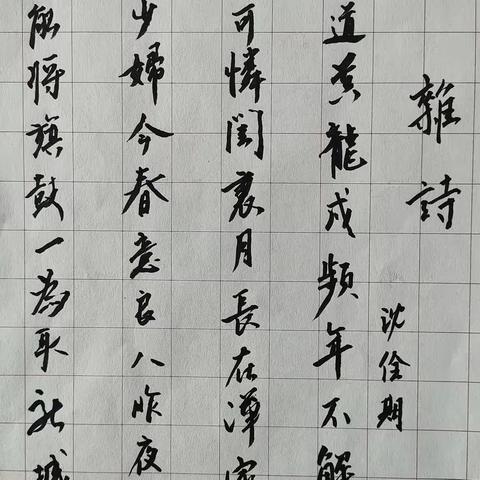 雜詩
沈佺期
道黃龍戍頻年不解
可憐閨裏月長在漢家
少婦今春意良人昨夜
能將旗鼓一為取龍城